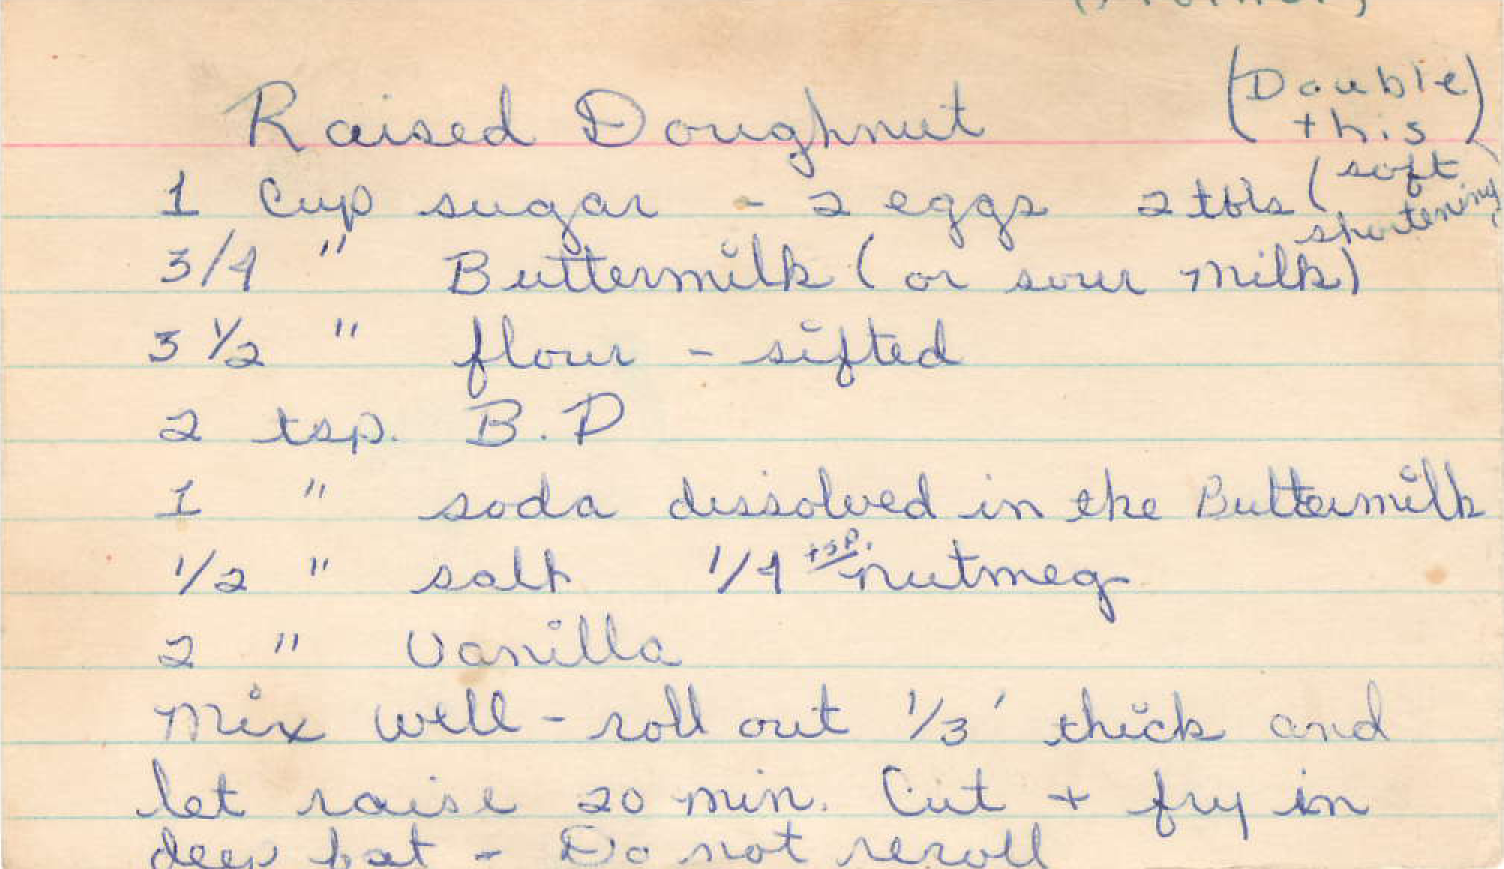 Raised Doughnut (Double
this)
1 Cup sugar - 2 eggs 2 tbls (soft
shortening)
3/4 " Buttermilk (or sour milk)
3 1/2 " flour - sifted
2 tsp. B.P
1 " soda dissolved in the Buttermilk
1/2 " salt 1/4 tsp. nutmeg
2 " Vanilla
Mix well - roll out 1/3' thick and
let raise 20 min. Cut + fry in
deep fat - Do not reroll